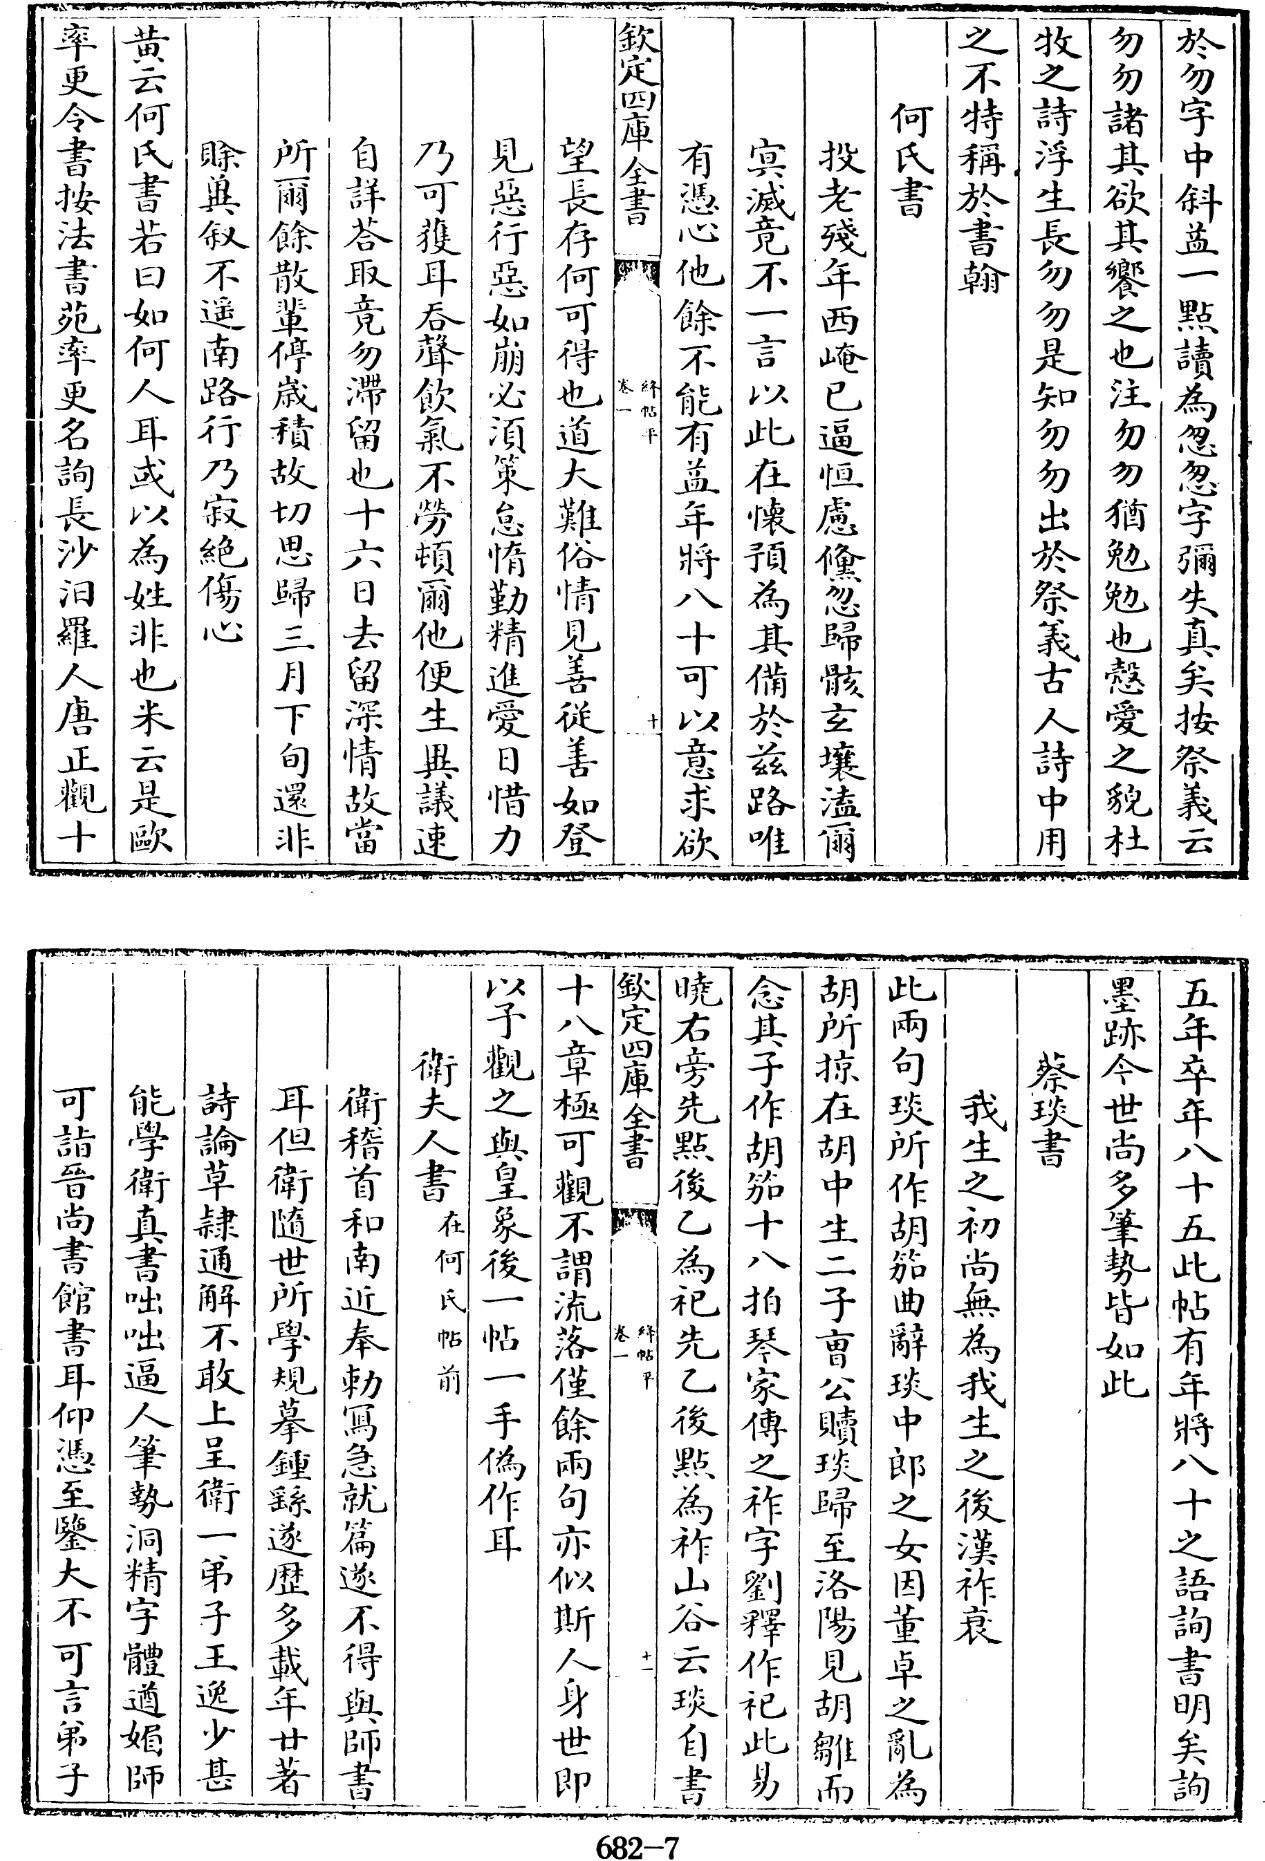 於勿字中斜益一點讀為怱怱字彌失真矣按祭義云
勿勿諸其欲其饗之也注勿勿猶勉勉也慤愛之貌杜
牧之詩浮生長勿勿是知勿勿出於祭義古人詩中用
之不特稱於書翰
何氏書
投老殘年西崦已逼恒慮儵忽歸骸玄壤溘爾
寘滅竟不一言以此在懷預為其備於兹路唯
有憑心他餘不能有益年將八十可以意求欲
欽定四庫全書
絳帖平
卷一
十
望長存何可得也道大難俗情見善從善如登
見惡行惡如崩必須策怠惰勤精進愛日惜力
乃可獲耳吞聲飲氣不勞頓爾他便生異議速
自詳荅取竟勿滯留也十六日去留深情故當
所爾餘散輩停歲積故切思歸三月下旬還非
賖冀叙不遥南路行乃寂絶傷心
黄云何氏書若曰如何人耳或以為姓非也米云是歐
率更令書按法書苑率更名詢長沙汨羅人唐正觀十
五年卒年八十五此帖有年將八十之語詢書明矣詢
墨跡今世尚多筆勢皆如此
蔡琰書
我生之初尚無為我生之後漢祚衰
此兩句琰所作胡笳曲辭琰中郎之女因董卓之亂為
胡所掠在胡中生二子曹公贖琰歸至洛陽見胡雛而
念其子作胡笳十八拍琴家傳之祚字劉釋作祀此易
曉右旁先點後乙為祀先乙後點為祚山谷云琰自書
欽定四庫全書
絳帖平
卷一
十一
十八章極可觀不謂流落僅餘兩句亦似斯人身世即
以予觀之與皇象後一帖一手偽作耳
衛夫人書 在何氏帖前
衛稽首和南近奉勅寫急就篇遂不得與師書
耳但衛隨世所學規摹鍾繇遂歷多載年廿著
詩論草隸通解不敢上呈衛一弟子王逸少甚
能學衛真書咄咄逼人筆勢洞精字體遒媚師
可詣晉尚書館書耳仰憑至鑒大不可言弟子
682-7